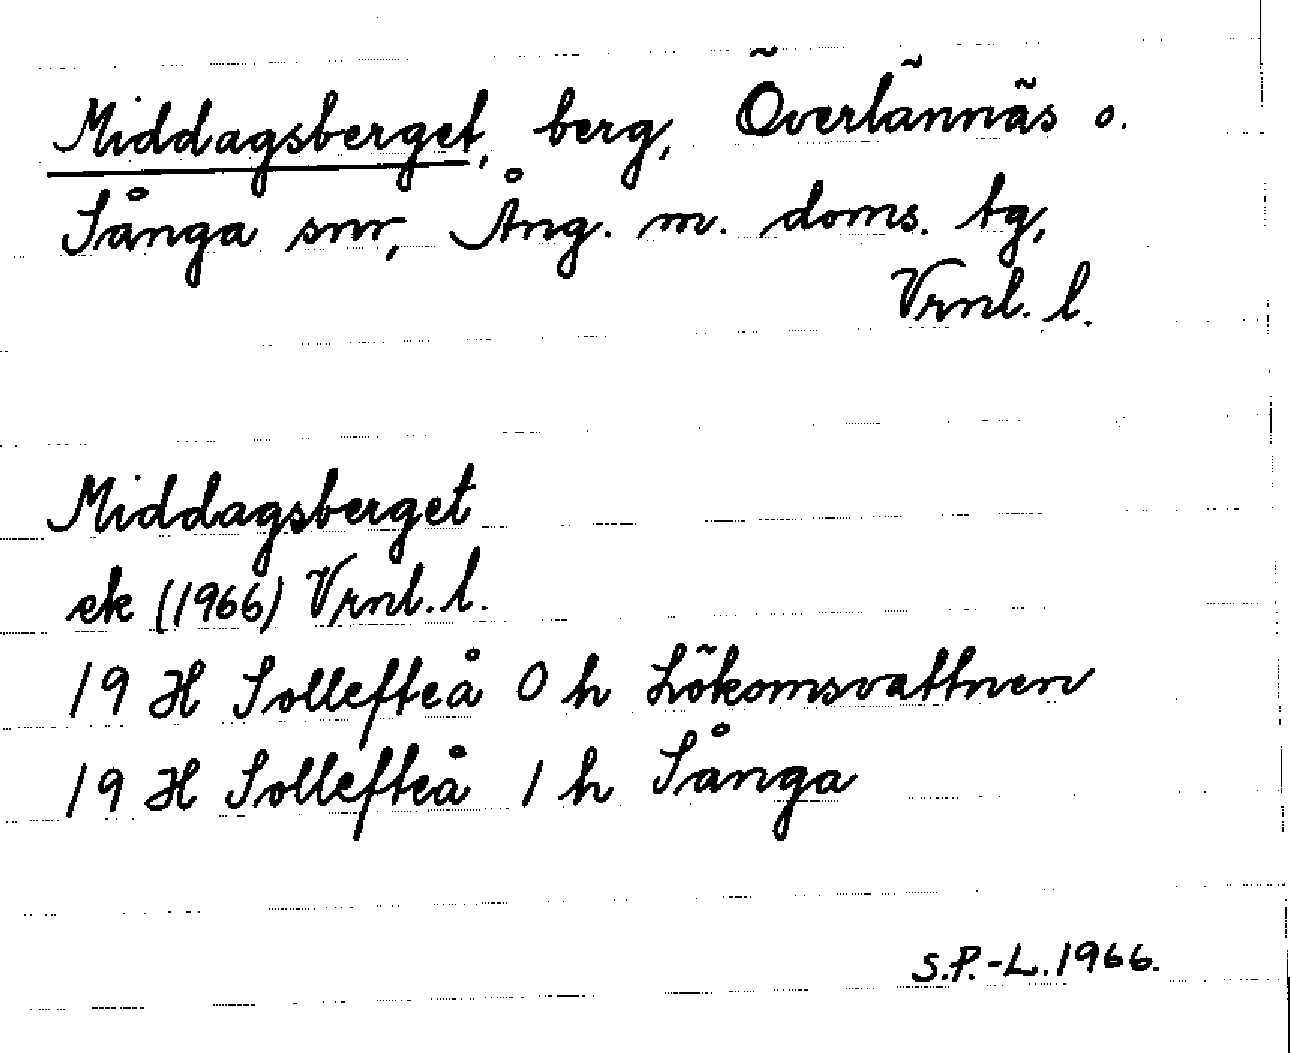 Middagsberget, berg, Överlännäs o.
Sånga snr, Ång. m. doms. tg,
Vrnl. l.
Middagsberget
ek (1966) Vrnl. l.
19 H Sollefteå 0 h Lökomsvattnen
19 H Sollefteå 1 h Sånga
S.P.-L. 1966.